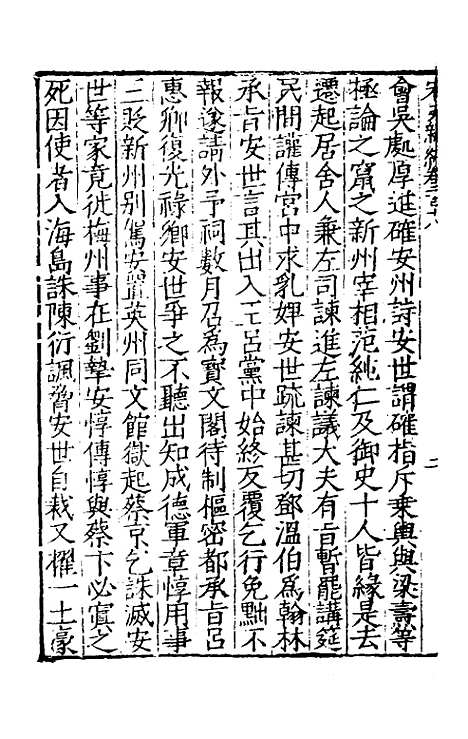 會吳處厚進確安州詩安世謂確指斥乗輿與梁燾等
極論之竄之新州宰相范純仁及御史十人皆緣是去
遷起居舍人兼左司諫進左諫議大夫有旨暫罷講筵
民間讙傳宮中求乳婢安世疏諫甚切鄧溫伯爲翰林
承旨安世言其出入王呂黨中始終反覆乞行免黜不
報遂請外予祠數月召爲寶文閣待制樞密都承旨呂
惠卿復光祿卿安世爭之不聽出知成德軍章惇用事
三貶新州别駕安置英州同文館獄起蔡京乞誅滅安
世等家竟徙梅州事在劉摯安惇傳惇與蔡卞必寘之
死因使者入海島誅陳衍諷脅安世自裁又擢一土豪